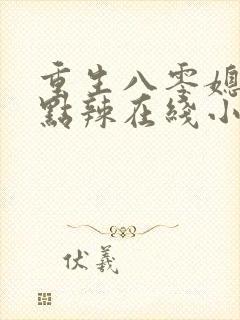 重生八零媳
點辣在綫小
伏羲